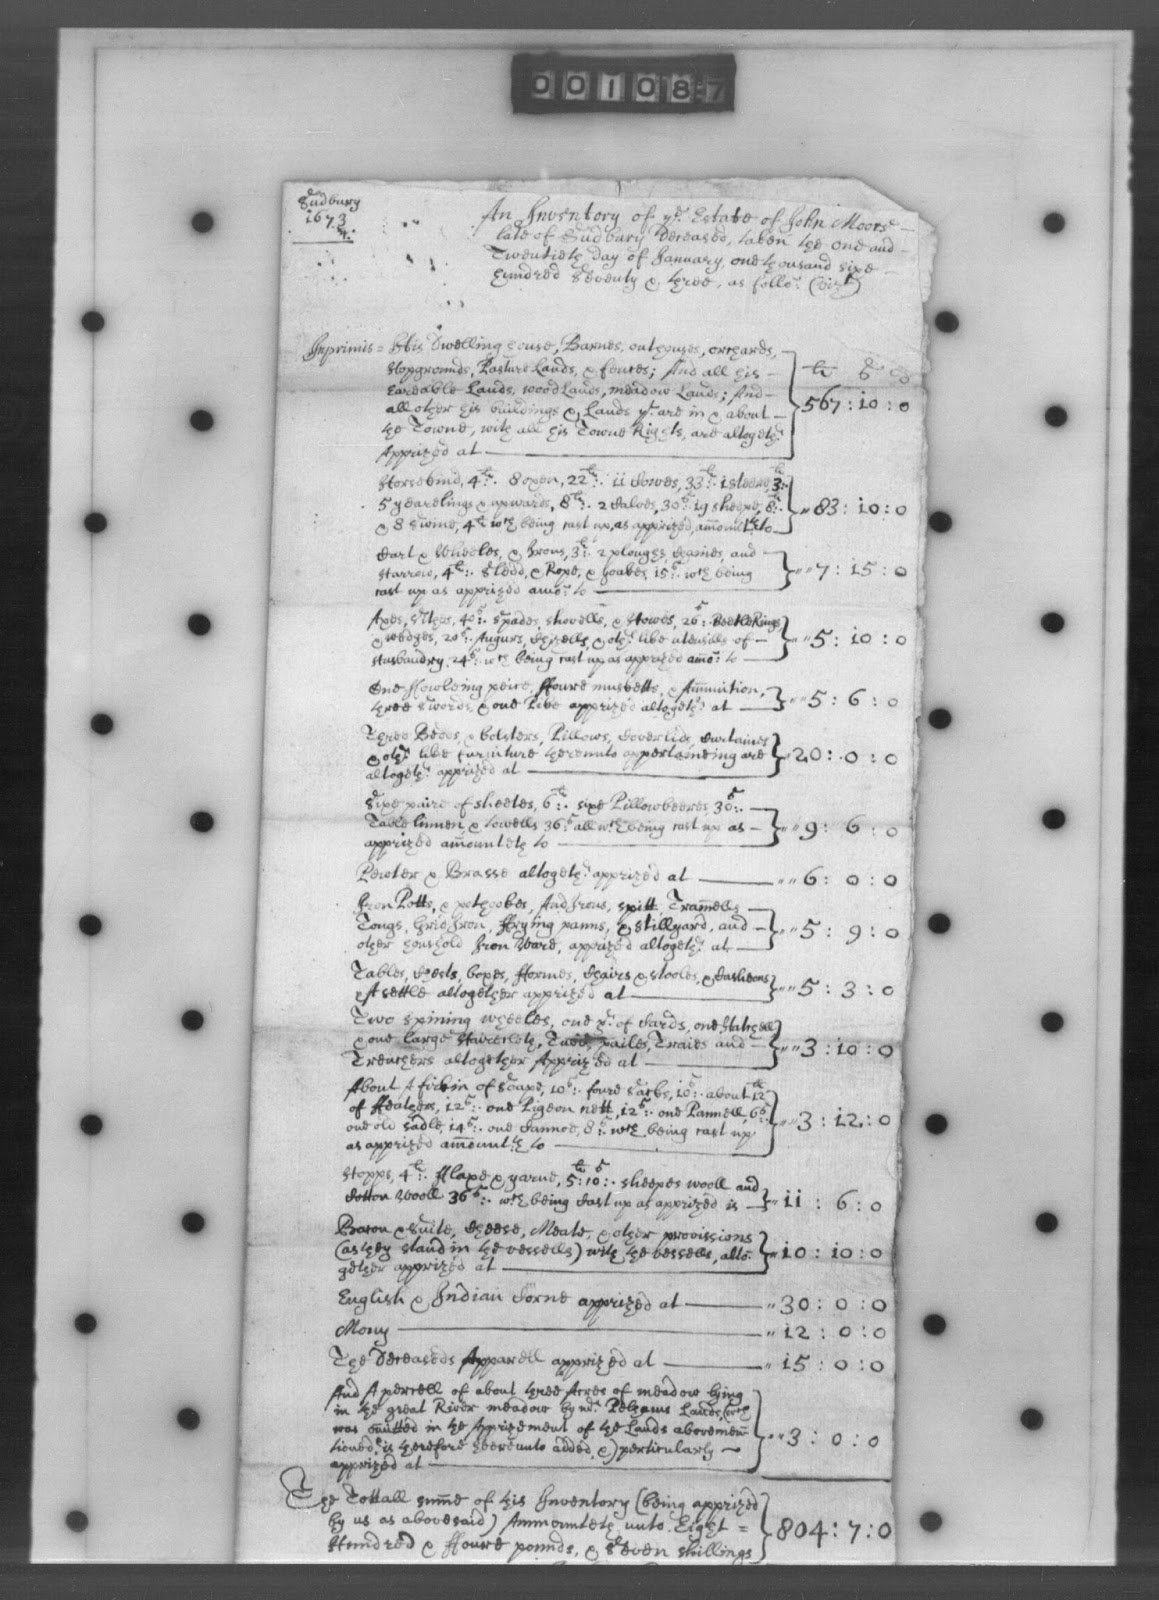 001087
Sudbury
1673
4.
An Inventory of ye. Estate of John Moore
late of Sudbury Deceased, taken the one and
Twentieth day of January, one thousand sixe
hundred Seventy & three, as follo: (vizt)
Inprimis = His Dwelling house, Barnes, outhouses, orchards,
Hopgrounds, Pasture Lands, & fences; And all his
Eareable Lands, wood Lands, meadow Lands; And
all other his buildings & Lands yt. are in & about
the Towne, with all his Towne Rights, are altogethr.
Apprized at
li s d
567 : 10 : 0
Horsekind, 4li:. 8 oxen, 22li:. 11 Cowes, 33li:. 1 steere, 3li:.
5 yearelings & upwards, 8li:. 2 Calves, 30s:. 19 sheepe, 8li:.
& 8 swine, 4li: wch being cast up, as apprized, amounts to
83 : 10 : 0
Cart & Wheeles, & Irons, 3li:. 2 ploughs, Chaines, and
Harrow, 4li:. Sledd, & Rope, & yoakes 15s:. wch being
cast up as apprized amo: to
7 : 15 : 0
Axes, Sithes, 40s:. Spades, shovells, & Howes, 26s:. Beetle Rings
& wedges, 20s:. Augurs, Chizells, & othr. like utensills of
Husbandry, 24s:. wch being cast up as apprized amo: to
5 : 10 : 0
One ffowleing peice, ffoure musketts, & Ammunition,
three Swords, & one Pike apprized altogethr. at
5 : 6 : 0
Three Bedds, & bolsters, Pillows, Coverlids, Curtaines
& othr. like furniture thereunto appertaineing are
altogethr. apprized at
20 : 0 : 0
Sixe paire of sheetes, 6li:. sixe Pillowbeeres, 30s:.
Table linnen & towells 36s: all wch being cast up as
apprized amounteth to
9 : 6 : 0
Pewter & Brasse altogethr. apprized at
6 : 0 : 0
Iron Potts, & pothookes, Andirons, spitt, Tramells
Tongs, Gridiron, ffrying panns, & Stillyard, and
other houshold Iron Ware, apprized altogethr. at
5 : 9 : 0
Tables, Chests, boxes, fformes, Chairs & stooles, & Cushions
& A settle altogether apprized at
5 : 3 : 0
Two spining wheeles, one pr. of Cards, one Hatchell
& one large pailes, Traies and
Trenchers altogether Apprized at
3 : 10 : 0
About A firkin of Soape, 10s:. foure Sacks, 10s:. about 12li
of ffeathers, 12s:. one Pigeon nett, 12s:. one Pannell, 6s:.
one old sadle, 14s:. one Cannoe, 8s:. wch being cast up
as apprized amounth. to
3 : 12 : 0
Hopps, 4li:. fflaxe & yarne, 5li: 10s:. sheepes wooll and
Cotton Wooll 36s:. wch being Cast up as apprized is
11 : 6 : 0
Bacon & Suite, Cheese, Meate, & other provissions
(as they stand in the vessells) with the vessells, alto-
gether apprized at
10 : 10 : 0
English & Indian Corne apprized at
30 : 0 : 0
Mony
12 : 0 : 0
The Deceaseds Apparell apprized at
15 : 0 : 0
And A percell of about three Acres of meadow lying
in the great River meadow by mr. Pelhams Lands, (wch
was omitted in the Apprizement of the Lands abovemen
tioned, is therefore heereunto added &) perticularly
apprized at
3 : 0 : 0
The Tottall summe of this Inventory (being apprized
by us as abovesaid) Ammounteth unto Eight =
Hundred & ffoure pounds, & Seven shillings
804 : 7 : 0